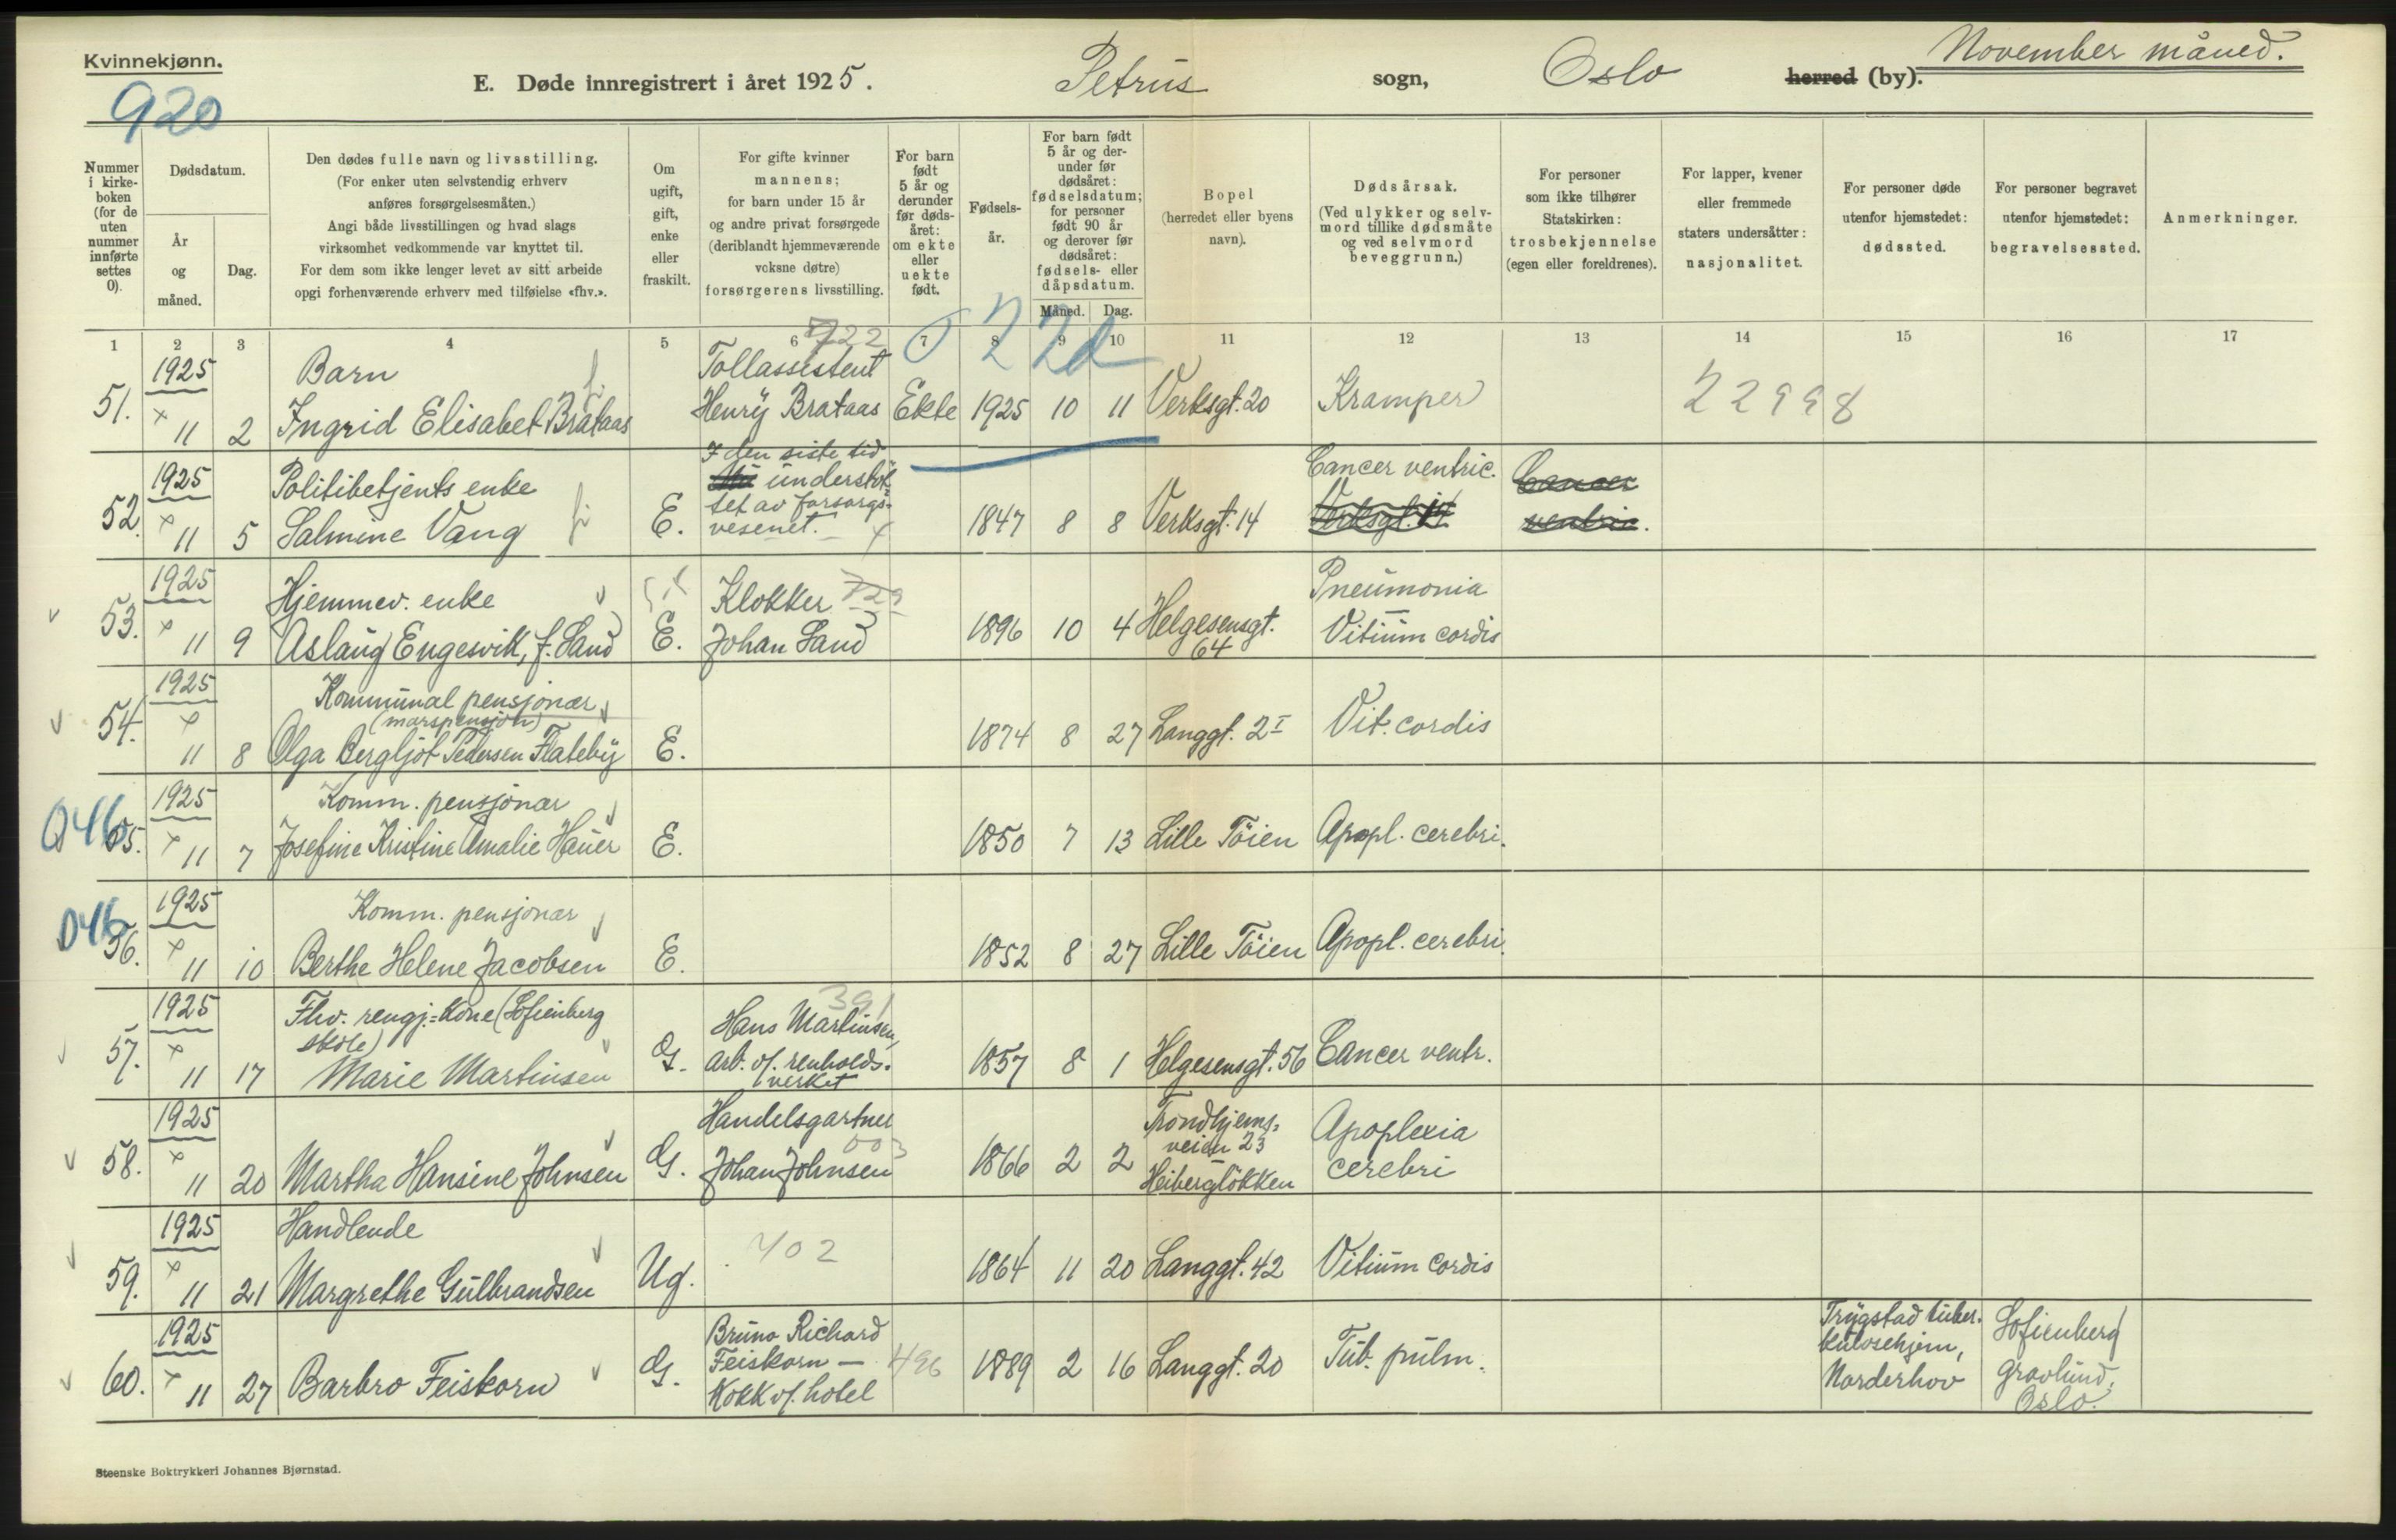 Kvinnekjønn.
920
E. Døde innregistrert i året 1925.
Petrus sogn,
Oslo herred (by).
November måned.
Nummer i kirke-boken (for de uten nummer innførte settes 0).
Dødsdatum.
År og måned.
Dag.
Den dødes fulle navn og livsstilling.
(For enker uten selvstendig erhverv
anføres forsørgelsesmåten.)
Angi både livsstillingen og hvad slags
virksomhet vedkommende var knyttet til.
For dem som ikke lenger levet av sitt arbeide
opgi forhenværende erhverv med tilføielse «fhv.».
Om
ugift,
gift,
enke
eller
fraskilt.
For gifte kvinner
mannens;
for barn under 15 år
og andre privat forsørgede
(deriblandt hjemmeværende
voksne døtre)
forsørgerens livsstilling.
For barn
født
5 år og
derunder
før døds-
året:
om ekte
eller
uekte
født.
Fødsels-
år.
For barn født
5 år og der-
under før
dødsåret:
fødselsdatum;
for personer
født 90 år
og derover før
dødsåret:
fødsels- eller
dåpsdatum.
Måned. Dag.
Bopel
(herredet eller byens
navn).
Dødsårsak.
(Ved ulykker og selv-
mord tillike dødsmåte
og ved selvmord
beveggrunn.)
For personer
som ikke tilhører
Statskirken:
trosbekjennelse
(egen eller foreldrenes).
For lapper, kvener
eller fremmede
staters undersåtter:
nasjonalitet.
For personer døde
utenfor hjemstedet:
dødssted.
For personer begravet
utenfor hjemstedet:
begravelsessted.
Anmerkninger.
1 2 3 4 5 6 7 8 9 10 11 12 13 14 15 16 17
722
22d
1925 Barn Tollassistent
51. 11 2 Ingrid Elisabet Brataas Henry Brataas Ekte 1925 10 11 Verksgt. 20 Kramper 22998
I den siste tid
1925 Politibetjents enke understøt- Cancer ventric. Cancer
tet av forsorgs-
52. 11 5 Salmine Vang E. vesenet. 1847 8 8 Verksgt. 14 Verksgt. 14 ventric.
1925 Hjemmev. enke Klokker 729 Pneumonia
53. 11 9 Aslaug Engesvik, f. Sand E. Johan Sand 1896 10 4 Helgesensgt. Vitium cordis
64
1925 Kommunal pensjonær
(marspensjon)
54. 11 8 Olga Bergljot Pedersen Flateby E. 1874 8 27 Langgt. 2 I Vit. cordis
046
1925 Komm. pensjonær
55. 11 7 Josefine Kristine Amalie Hauer E. 1850 7 13 Lille Töien Apopl. cerebri.
046
1925 Komm. pensjonær
56. 11 10 Berthe Helene Jacobsen E. 1852 8 27 Lille Töien Apopl. cerebri.
391
1925 Fhv. rengj.=kone (Sofienberg Hans Martinsen,
skole) arb. v/. renholds-
57. 11 17 Marie Martinsen G. verket 1857 8 1 Helgesensgt. 56 Cancer ventr.
1925 Handelsgartner Trondhjems-
503 veien 23 Apoplexia
58. 11 20 Martha Hansine Johnsen G. Johan Johnsen 1866 2 2 Heiberglökken cerebri
1925 Handlende
402
59. 11 21 Margrethe Gulbrandsen Ug. 1864 11 20 Langgt. 42 Vitium cordis
1925 Bruno Richard Trygstad tuber- Sofienberg
Feiskorn — 496 kulosehjem, gravlund,
60. 11 27 Barbro Feiskorn G. Kokk v/. hotel 1889 2 16 Langgt. 20 Tub. pulm. Norderhov Oslo.
Steenske Boktrykkeri Johannes Bjørnstad.